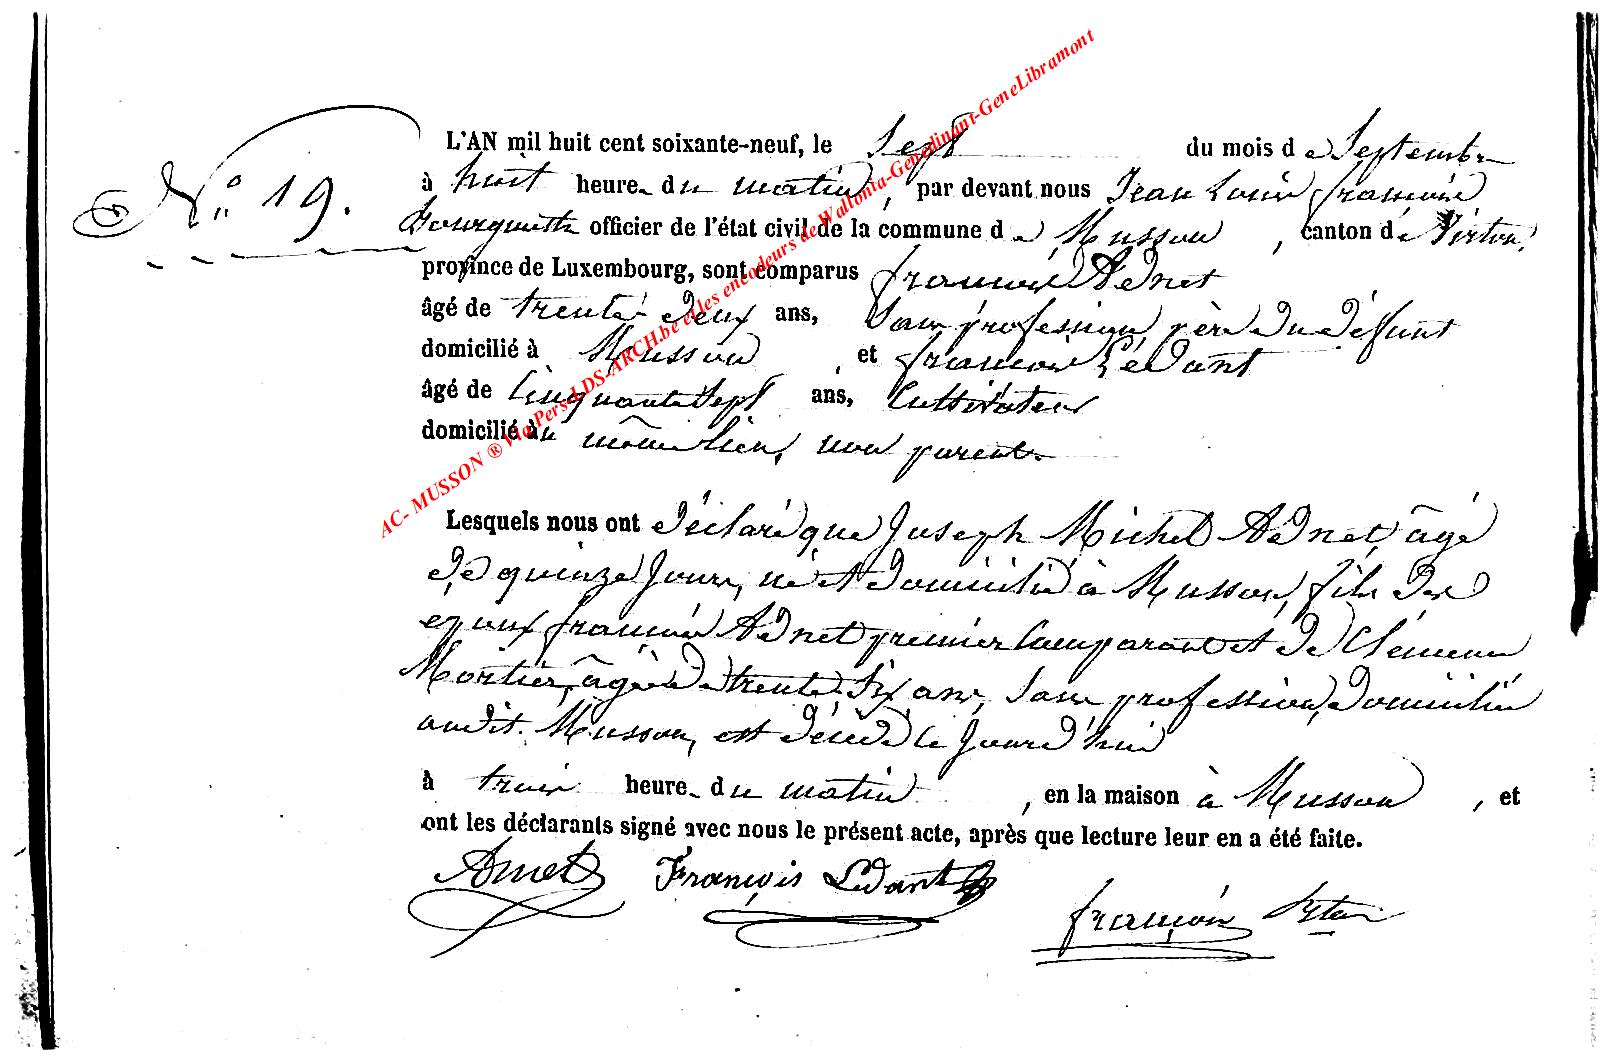 N° 19.
L'AN mil huit cent soixante-neuf, le Sept du mois de Septembre
à huit heure du matin, par devant nous Jean Louis François
officier de l'état civil de la commune de Musson, canton de Virton,
province de Luxembourg, sont comparus François Adnet
âgé de trente deux ans, Sans profession, père du défunt
domicilié à Musson, et François Lédant
âgé de Cinquante Sept ans, Cultivateur
domicilié au même lieu, non parents
Lesquels nous ont déclaré que Joseph Michel Adnet, âgé
de quinze Jours, né et domicilié à Musson, fils des
epoux François Adnet premier Comparant et de Clémence
Mortier, âgée de trente Six ans, Sans profession, domiciliés
audit Musson, est décédé ce Jourd'hui
à trois heure du matin, en la maison à Musson, et
ont les déclarants signé avec nous le présent acte, après que lecture leur en a été faite.
François Lédant
François
AC- MUSSON ® Via Pers-LDS-ARCH.be et les encodeurs de Wallonia-Genedinant-GeneLibramont